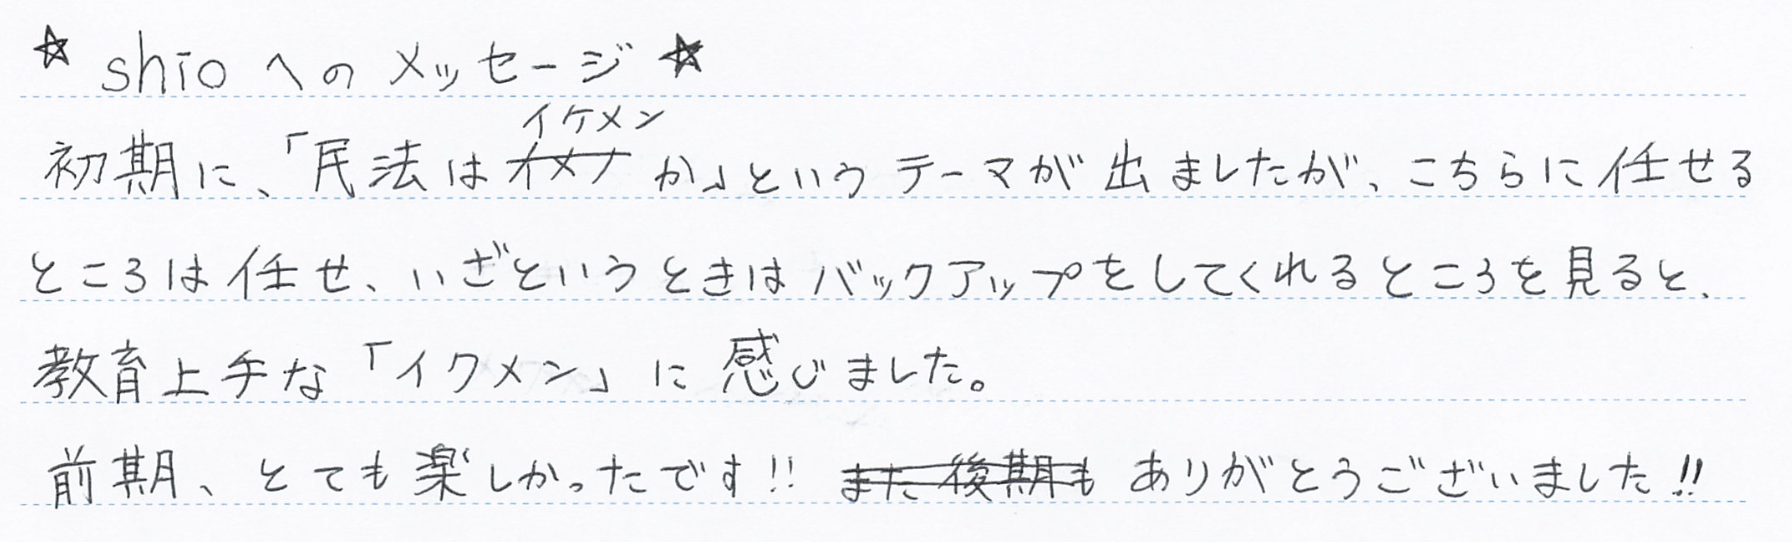 ☆ shio へのメッセージ ☆
イケメン
初期に、「民法はイメナか」というテーマが出ましたが、こちらに任せる
ところは任せ、いざというときはバックアップをしてくれるところを見ると、
教育上手な「イクメン」に感じました。
前期、とても楽しかったです!! また後期も ありがとうございました!!